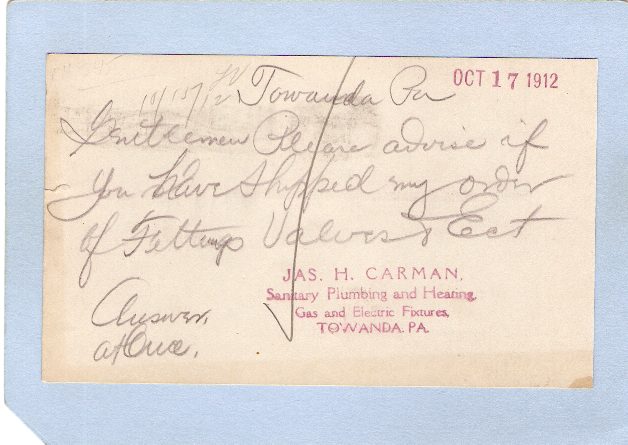 OCT 17 1912
10/15/12 Towanda Pa
Gentlemen Please advise if
you have shipped my order
of Fittings Valves & Ect
JAS. H. CARMAN,
Sanitary Plumbing and Heating,
Gas and Electric Fixtures,
TOWANDA. PA.
Answer,
at Once,